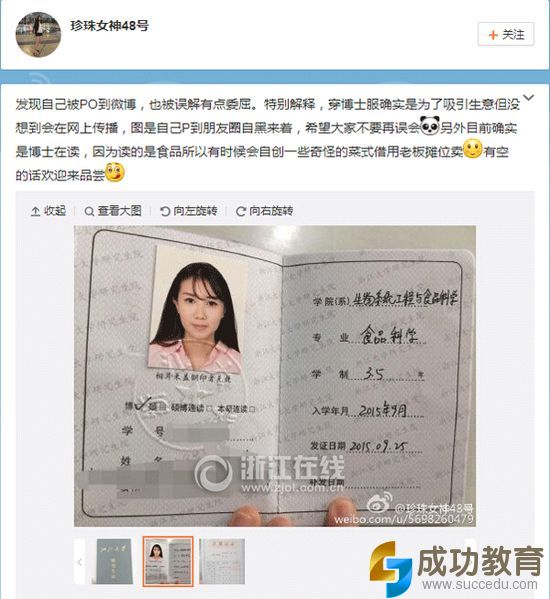 珍珠女神48号
+ 关注
发现自己被PO到微博，也被误解有点委屈。特别解释，穿博士服确实是为了吸引生意但没
想到会在网上传播，图是自己P到朋友圈自黑来着，希望大家不要再误会 另外目前确实
是博士在读，因为读的是食品所以有时候会自创一些奇怪的菜式借用老板摊位卖 有空
的话欢迎来品尝
收起 查看大图 向左旋转 向右旋转
相片未盖钢印者无效
博 硕 硕博连读 本硕连读
学号
姓名
学院(系) 生物系统工程与食品科学
专业 食品科学
学制 3.5 年
入学年月 2015年9月
发证日期 2015.09.25
补发日期
浙江在线
www.zjol.com.cn
@珍珠女神48号
weibo.com/u/5698260479
成功教育
www.succedu.com